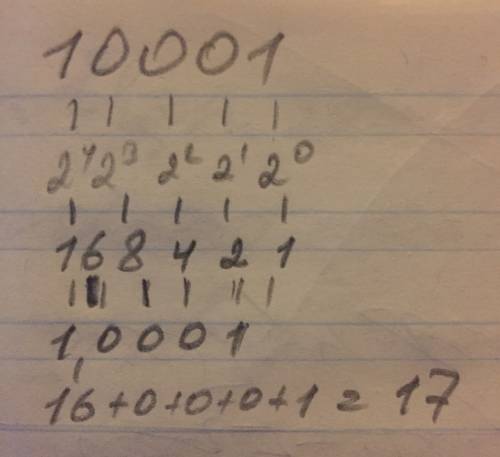 10001
2⁴ 2³ 2² 2¹ 2⁰
16 8 4 2 1
1,0001
16+0+0+0+1=17